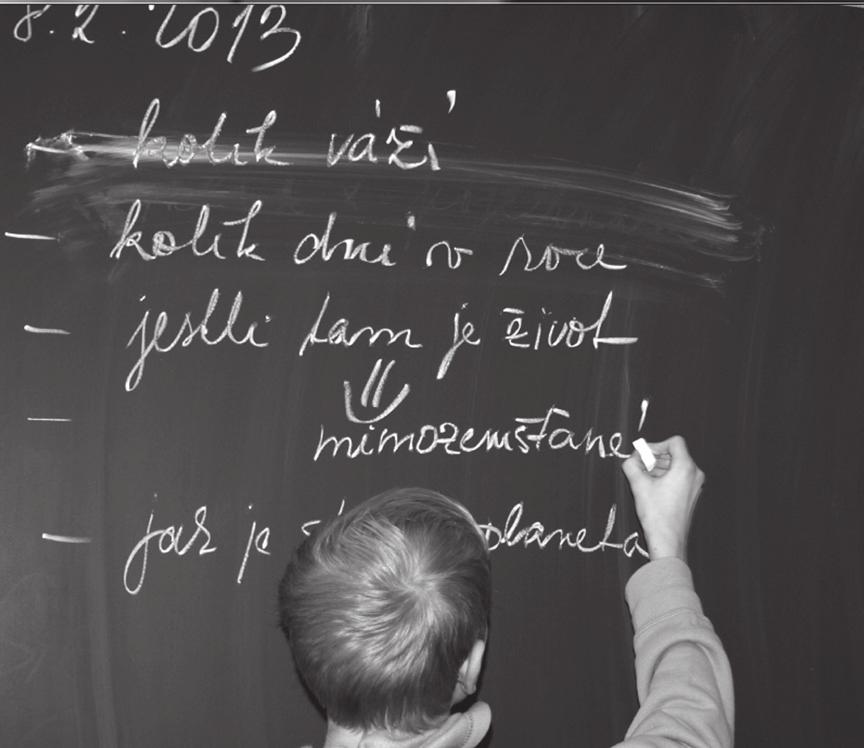 8.2.2013
kolik váží
– kolik dní v roce
– jestli tam je život
–
mimozemšťané
– jak je planeta